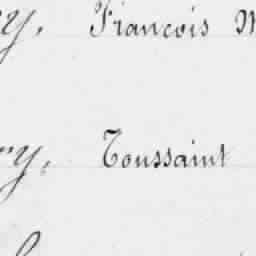 y, François
y, Toussaint